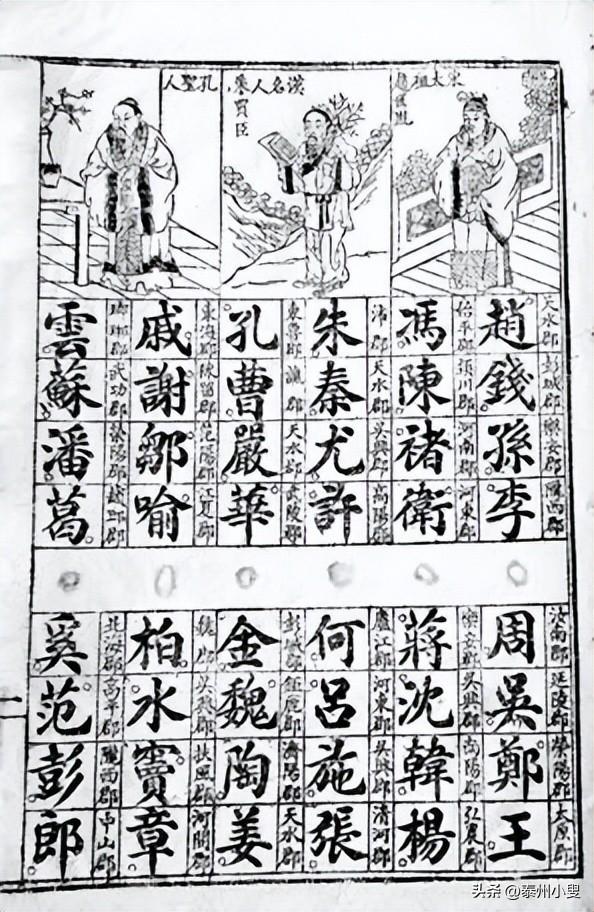 宋太祖
趙匡胤
漢名人朱
買臣
孔聖人
天水郡 彭城郡 樂安郡 隴西郡
趙錢孫李
始平郡 潁川郡 河南郡 河東郡
馮陳褚衛
沛郡 天水郡 吳興郡 高陽郡
朱秦尤許
東魯郡 譙郡 天水郡 武陵郡
孔曹嚴華
東海郡 陳留郡 范陽郡 江夏郡
戚謝鄒喻
瑯琊郡 武功郡 滎陽郡
雲蘇潘葛
汝南郡 延陵郡 滎陽郡 太原郡
周吳鄭王
樂安郡 吳興郡 南陽郡 弘農郡
蔣沈韓楊
廬江郡 河東郡 吳興郡 清河郡
何呂施張
彭城郡 鉅鹿郡 濟陽郡 天水郡
金魏陶姜
魏郡 吳興郡 扶風郡 河間郡
柏水竇章
北海郡 高平郡 隴西郡 中山郡
奚范彭郎
头条 @泰州小叟